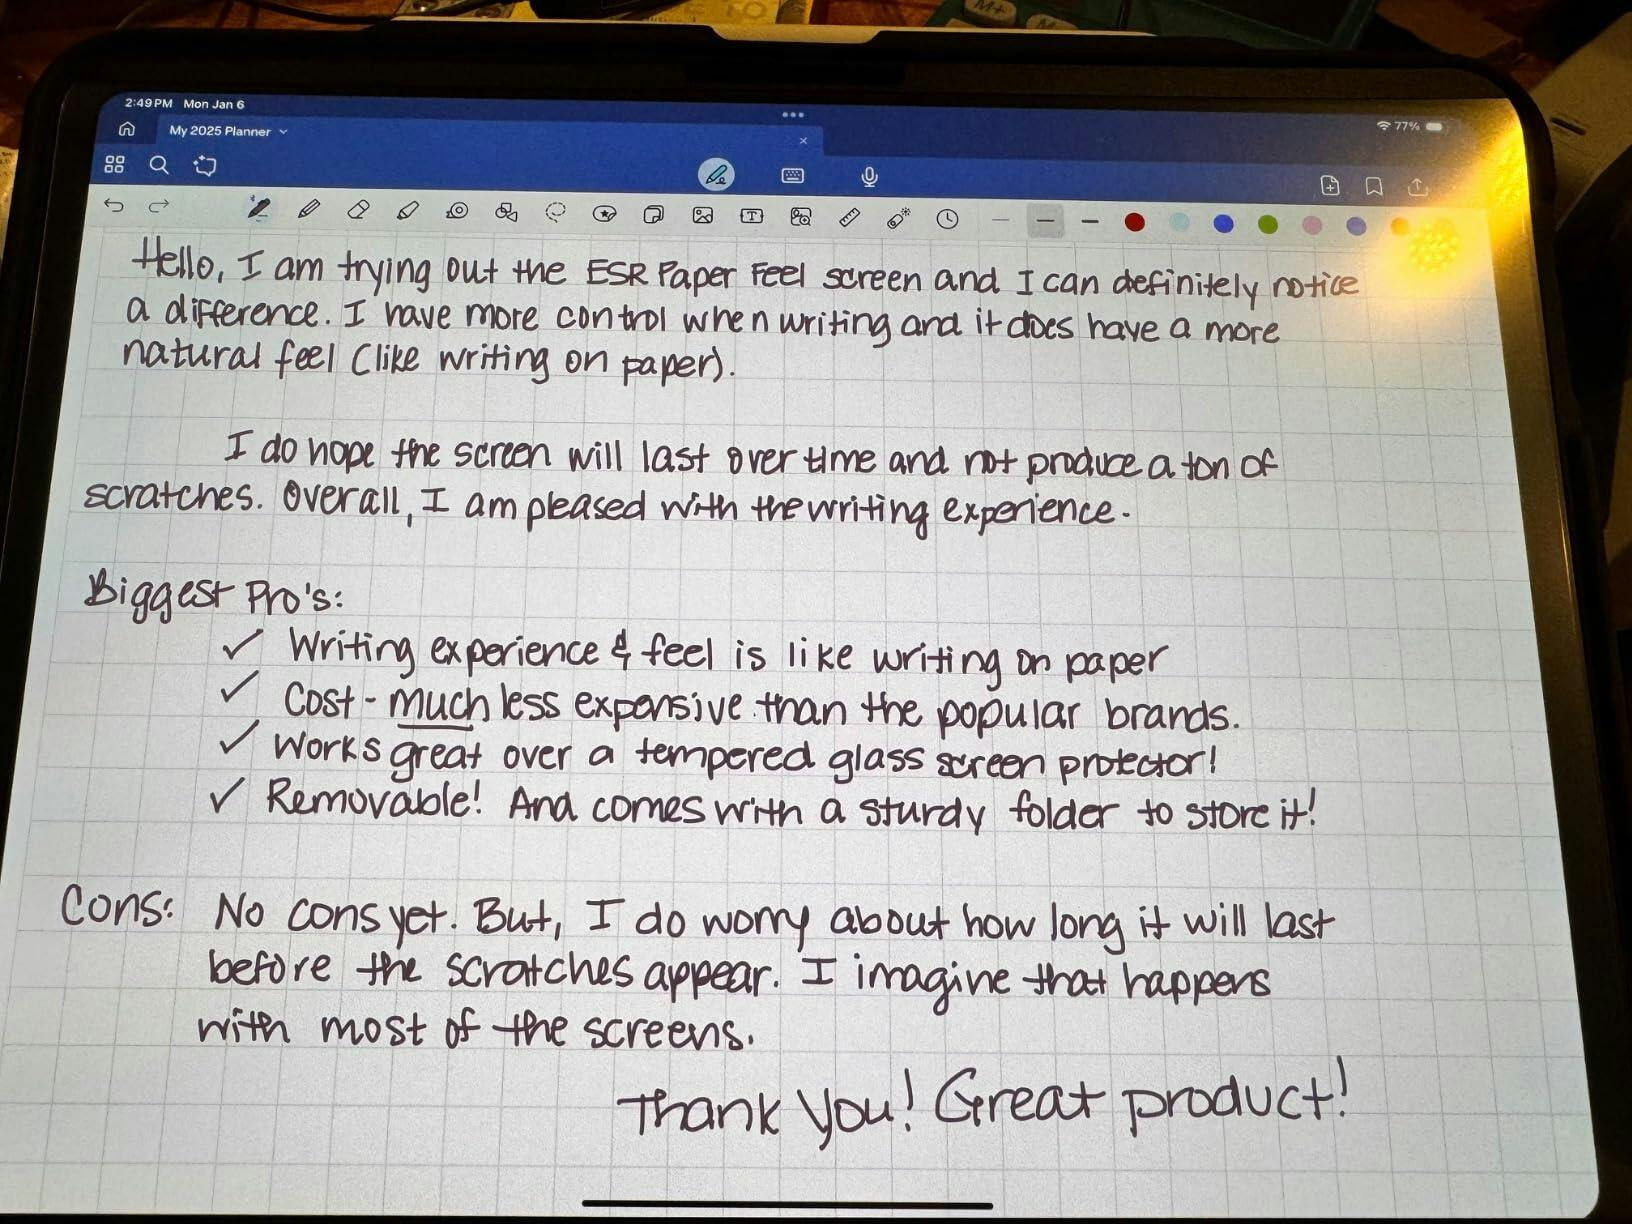 2:49 PM Mon Jan 6
77%
My 2025 Planner
Hello, I am trying out the ESR Paper Feel screen and I can definitely notice
a difference. I have more control when writing and it does have a more
natural feel (like writing on paper).
I do hope the screen will last over time and not produce a ton of
scratches. Overall, I am pleased with the writing experience.
Biggest Pro's:
✓ Writing experience & feel is like writing on paper
✓ Cost - much less expensive than the popular brands.
✓ Works great over a tempered glass screen protector!
✓ Removable! And comes with a sturdy folder to store it!
Cons: No cons yet. But, I do worry about how long it will last
before the scratches appear. I imagine that happens
with most of the screens.
Thank you! Great product!